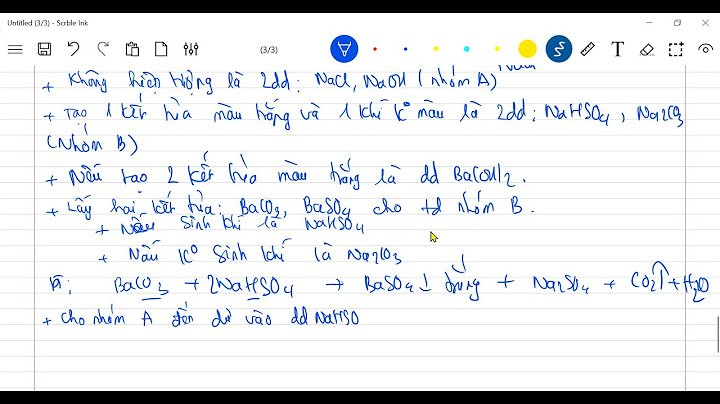 Untitled (3/3) - Scrble Ink
(3/3)
+ Không hiện tượng là 2dd: NaCl, NaOH (nhóm A)
+ Tạo 1 kết tủa màu trắng và 1 khí k° màu là 2dd: NaHSO4, Na2CO3
(Nhóm B)
+ Nếu tạo 2 kết tủa màu trắng là dd Ba(OH)2.
+ Lấy hai kết tủa: BaCO3, BaSO4 cho td nhóm B.
+ Nếu sinh khí là NaHSO4
+ Nếu K° sinh khí là Na2CO3
BaCO3 + 2NaHSO4 → BaSO4↓ trắng + Na2SO4 + CO2↑ + H2O
+ Cho nhóm A đến dư vào dd NaHSO